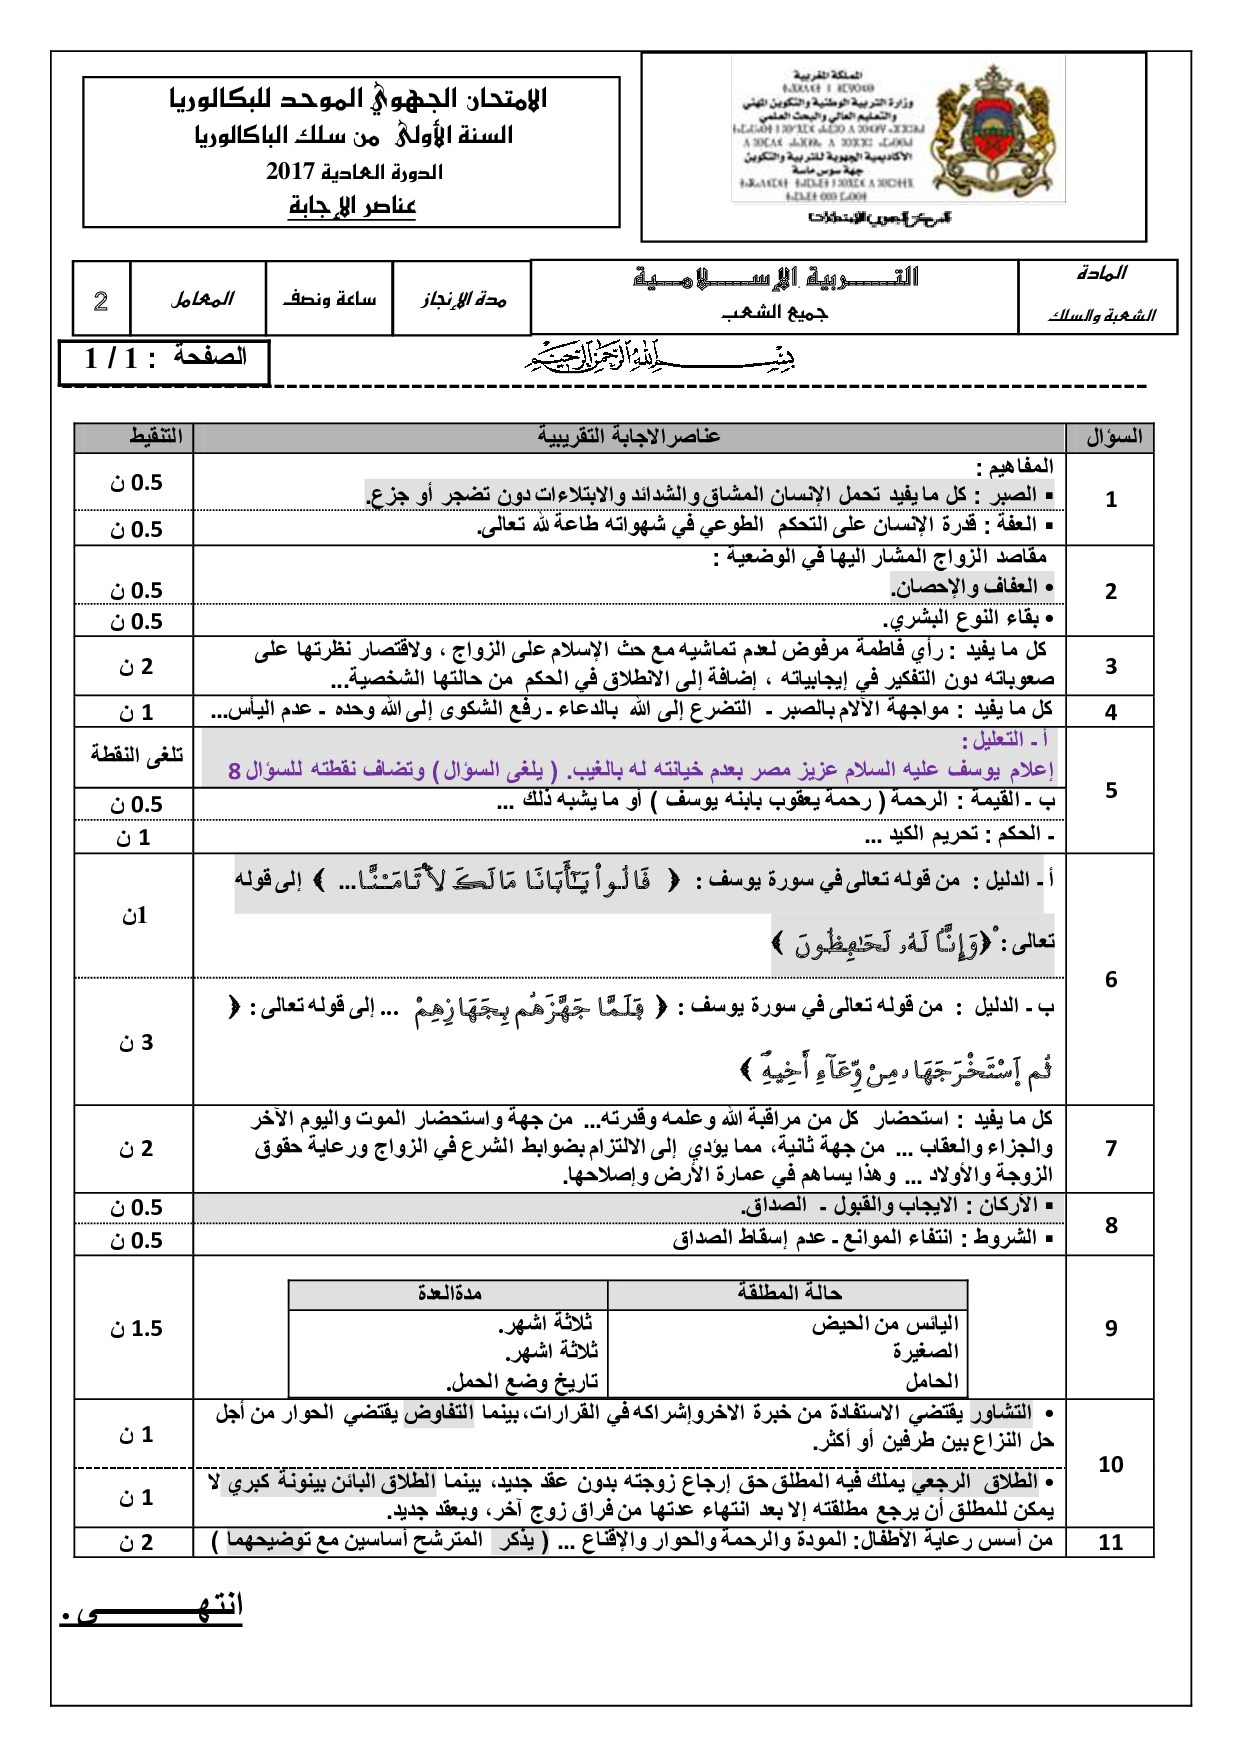 المملكة المغربية
وزارة التربية الوطنية والتكوين المهني
والتعليم العالي والبحث العلمي
الأكاديمية الجهوية للتربية والتكوين
جهة سوس ماسة
المركز الجهوي للامتحانات
الامتحان الجهوي الموحد للبكالوريا
السنة الأولى من سلك الباكالوريا
الدورة العادية 2017
عناصر الإجابة
المادة
التـــــربية الإســـــلامـــية
مدة الإنجاز
ساعة ونصف
المعامل
2
الشعبة والسلك
جميع الشعب
بسم الله الرحمن الرحيم
الصفحة : 1 / 1
السؤال عناصر الاجابة التقريبية التنقيط
1
المفاهيم :
▪ الصبر : كل ما يفيد تحمل الإنسان المشاق والشدائد والابتلاءات دون تضجر أو جزع. 0.5 ن
▪ العفة : قدرة الإنسان على التحكم الطوعي في شهواته طاعة لله تعالى. 0.5 ن
2
مقاصد الزواج المشار اليها في الوضعية :
• العفاف والإحصان. 0.5 ن
• بقاء النوع البشري. 0.5 ن
3
كل ما يفيد : رأي فاطمة مرفوض لعدم تماشيه مع حث الإسلام على الزواج ، ولاقتصار نظرتها على
صعوباته دون التفكير في إيجابياته ، إضافة إلى الانطلاق في الحكم من حالتها الشخصية... 2 ن
4 كل ما يفيد : مواجهة الآلام بالصبر - التضرع إلى الله بالدعاء - رفع الشكوى إلى الله وحده - عدم اليأس... 1 ن
5
أ - التعليل :
إعلام يوسف عليه السلام عزيز مصر بعدم خيانته له بالغيب. ( يلغى السؤال ) وتضاف نقطته للسؤال 8 تلغى النقطة
ب - القيمة : الرحمة ( رحمة يعقوب بابنه يوسف ) أو ما يشبه ذلك ... 0.5 ن
- الحكم : تحريم الكيد ... 1 ن
6
أ - الدليل : من قوله تعالى في سورة يوسف : ﴿ قَالُواْ يَٰٓأَبَانَا مَالَكَ لَا تَامَ۬نَّا... ﴾ إلى قوله
تعالى : ﴿وَإِنَّا لَهُۥ لَحَٰفِظُونَ ﴾ 1ن
ب - الدليل : من قوله تعالى في سورة يوسف : ﴿ فَلَمَّا جَهَّزَهُم بِجَهَازِهِمْ ... إلى قوله تعالى : ﴿
ثُم اَسْتَخْرَجَهَا مِنْ وِّعَآءِ اَخِيهِ ﴾ 3 ن
7
كل ما يفيد : استحضار كل من مراقبة الله وعلمه وقدرته... من جهة واستحضار الموت واليوم الآخر
والجزاء والعقاب ... من جهة ثانية، مما يؤدي إلى الالتزام بضوابط الشرع في الزواج ورعاية حقوق
الزوجة والأولاد ... وهذا يساهم في عمارة الأرض وإصلاحها. 2 ن
8
▪ الأركان : الايجاب والقبول - الصداق. 0.5 ن
▪ الشروط : انتفاء الموانع - عدم إسقاط الصداق 0.5 ن
9
حالة المطلقة مدةالعدة
اليائس من الحيض ثلاثة اشهر.
الصغيرة ثلاثة اشهر.
الحامل تاريخ وضع الحمل.
1.5 ن
10
• التشاور يقتضي الاستفادة من خبرة الاخروإشراكه في القرارات، بينما التفاوض يقتضي الحوار من أجل
حل النزاع بين طرفين أو أكثر. 1 ن
• الطلاق الرجعي يملك فيه المطلق حق إرجاع زوجته بدون عقد جديد، بينما الطلاق البائن بينونة كبري لا
يمكن للمطلق أن يرجع مطلقته إلا بعد انتهاء عدتها من فراق زوج آخر، وبعقد جديد. 1 ن
11 من أسس رعاية الأطفال: المودة والرحمة والحوار والإقناع ... ( يذكر المترشح أساسين مع توضيحهما ) 2 ن
انتهـــــــــى .